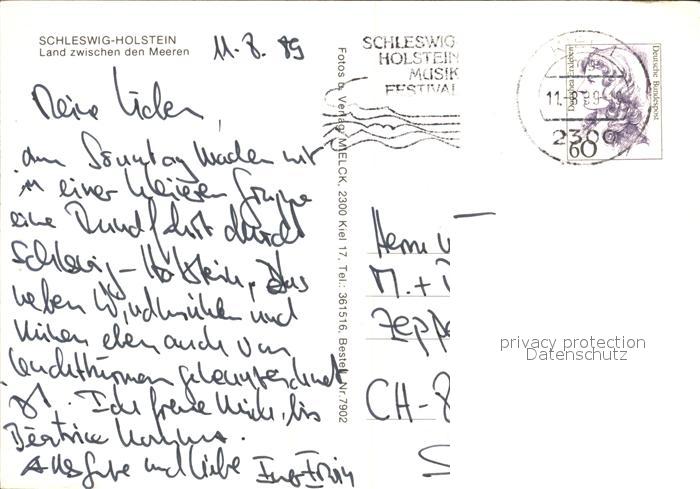 SCHLESWIG-HOLSTEIN
Land zwischen den Meeren
11.8.89
Meine Lieben,
am Sonntag machen wir
in einer kleineren Gruppe
eine Rundfahrt durch
Schleswig-Holstein, das
neben Windmühlen und
Kühen eben auch von
Leuchttürmen gekennzeichnet
ist. Ich freue mich, bis
Béatrice kommt.
Alles Gute und Liebe
Fotos u. Verlag MIELCK, 2300 Kiel 17, Tel.: 361516, Bestell Nr. 7902
SCHLESWIG
HOLSTEIN
MUSIK
FESTIVAL
11.-8.89
2300
Deutsche Bundespost
60
Herrn u
M. +
Zeppe
CH-8
privacy protection
Datenschutz